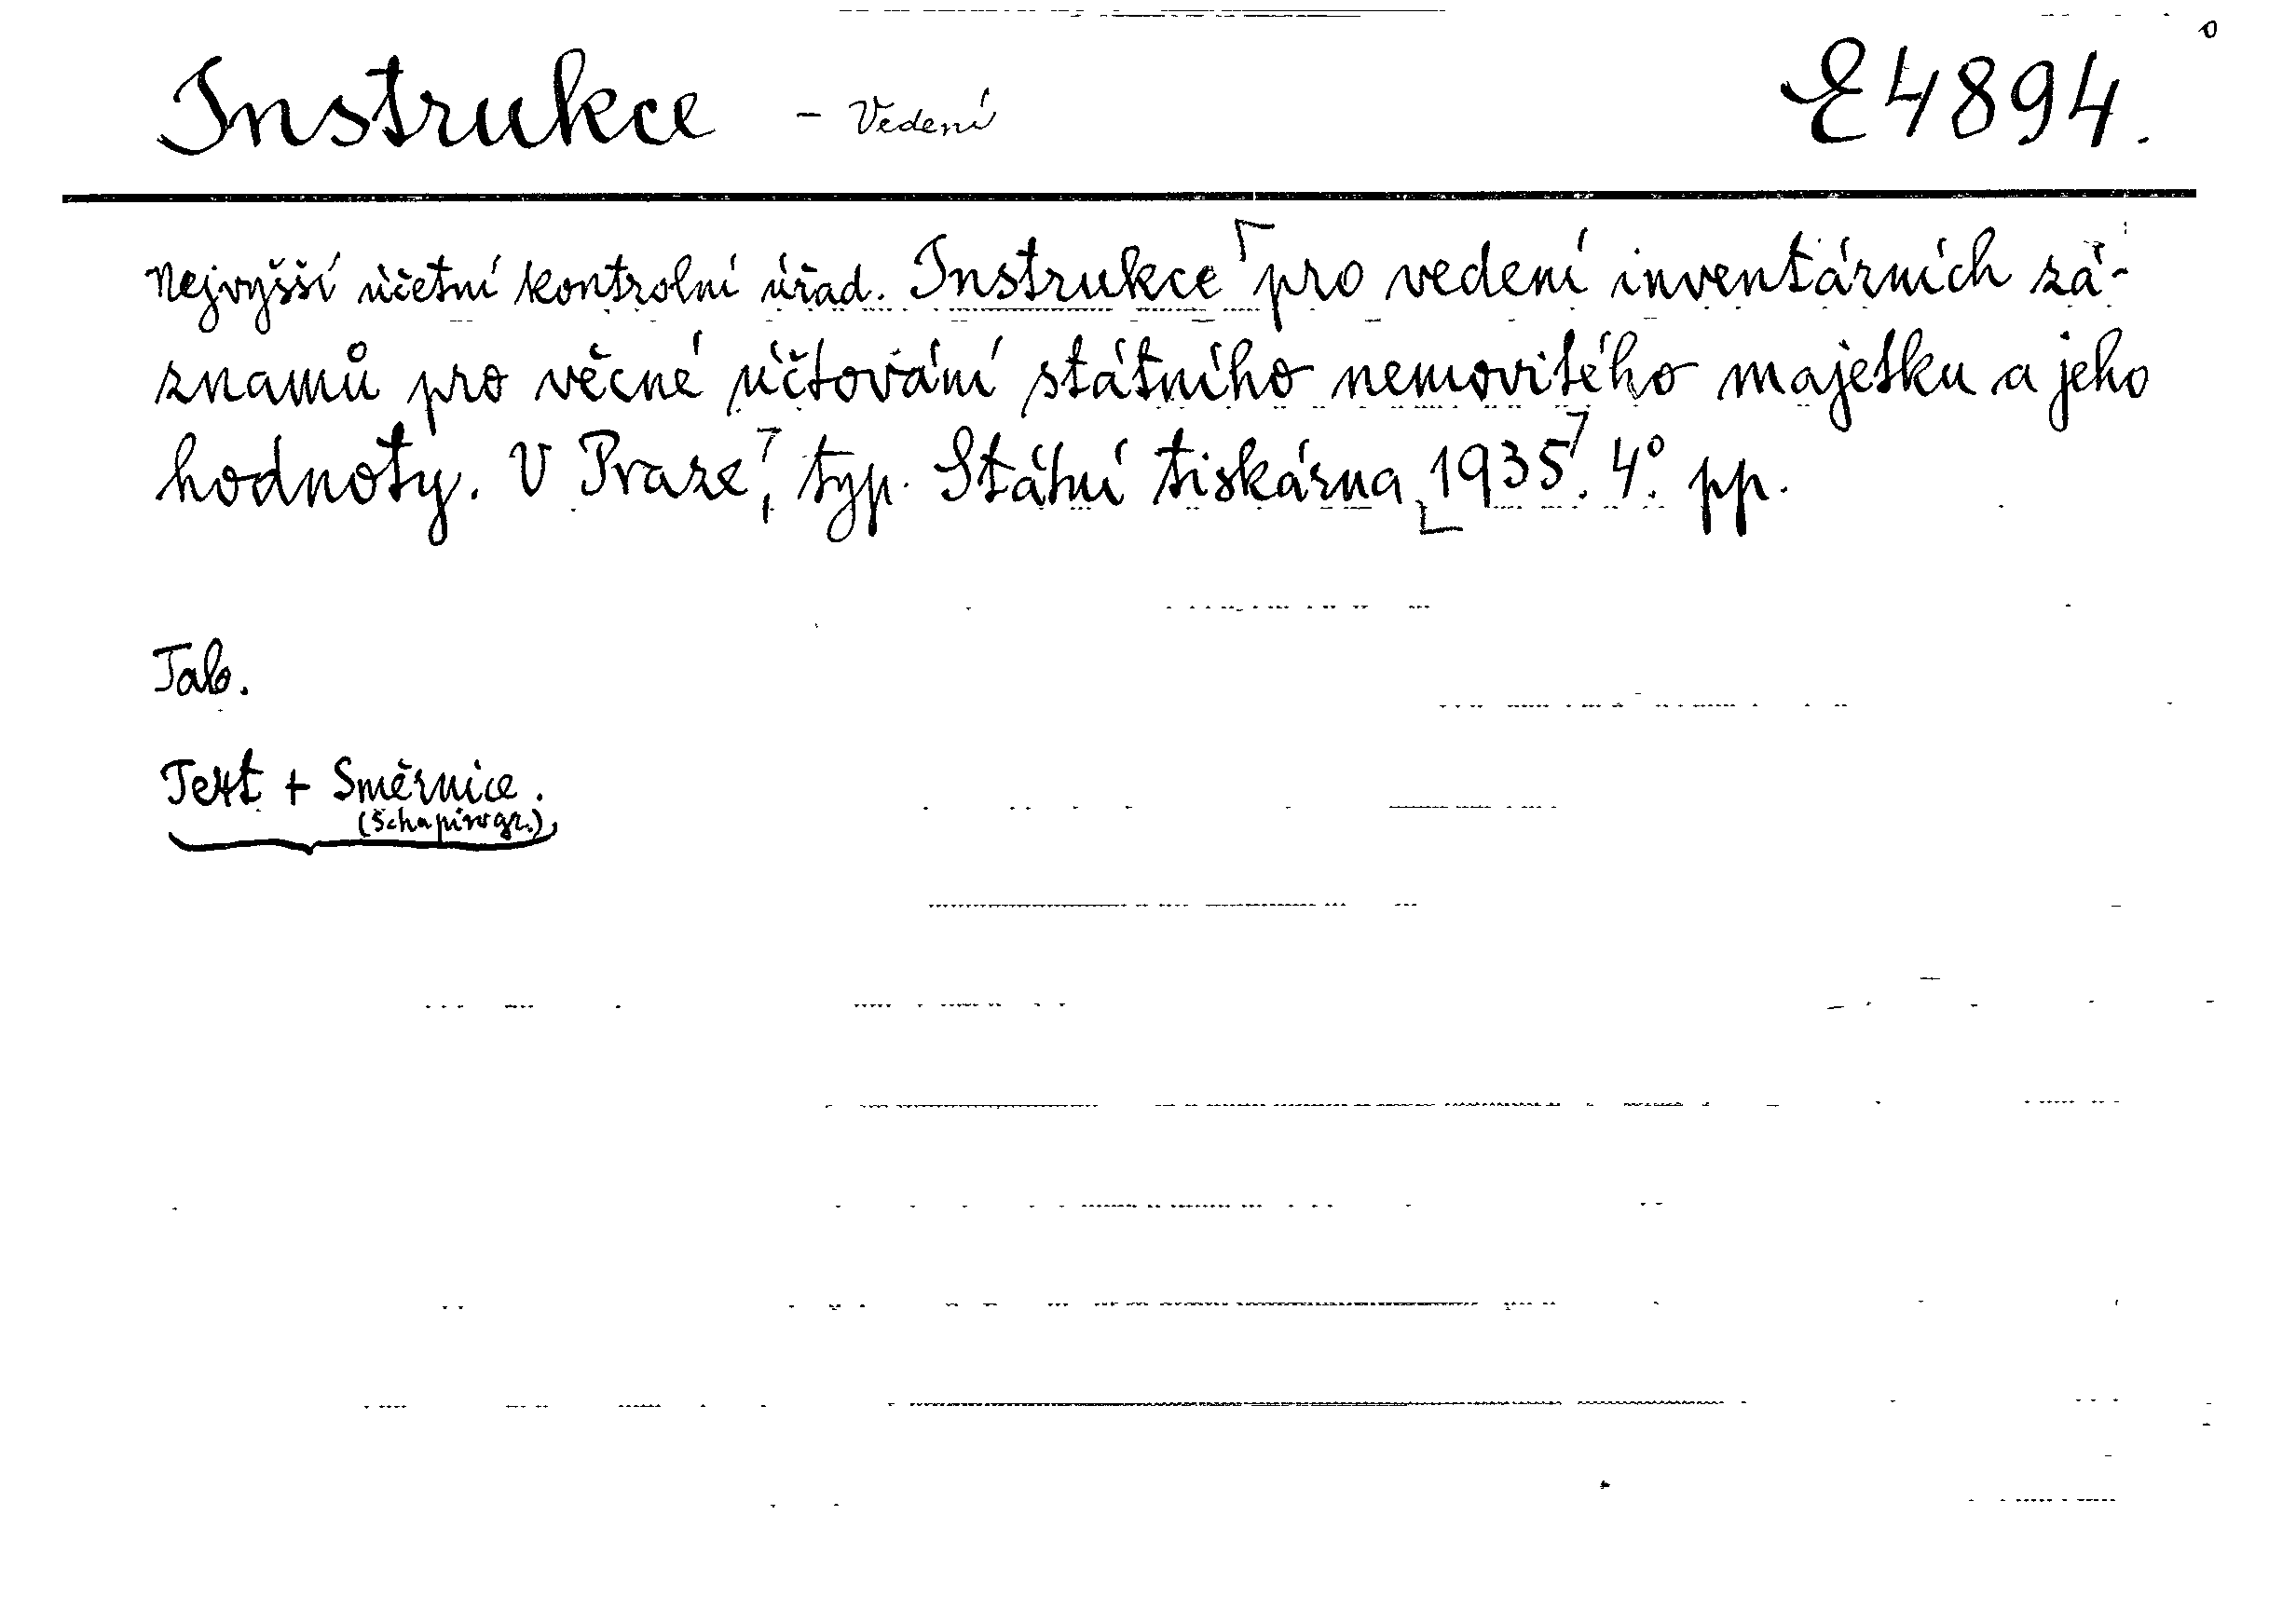 Instrukce - Vedení E4894.
Nejvyšší účetní kontrolní úřad. Instrukce pro vedení inventárních zá-
znamů pro věcné účtování státního nemovitého majetku a jeho
hodnoty. V Praze, typ. Státní tiskárna 1935. 4° pp.
Tab.
Text + Směrnice.
(Schapirogr.)